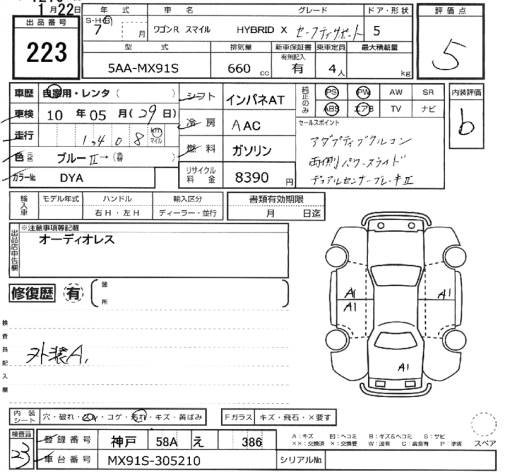 1月22日
出品番号
223
S-H-R
7
年式
月
車名
ワゴンR スマイル
グレード
HYBRID X セーフティサポート
ドア・形状
5
評価点
5
型式
5AA-MX91S
排気量
660 cc
新車保証書
有無記入
有
乗車定員
4人
最大積載量
kg
車歴
自家用・レンタ( )
車検
10年05月(29日)
走行
1,408
km
マイル
色
ブルーⅡ→(
カラー№
DYA
シフト
インパネAT
冷房
AAC
燃料
ガソリン
リサイクル料金
8390円
純正のみ
PS PW AW SR
ABS エアB TV ナビ
セールスポイント
アダプティブクルコン
両側パワースライド
デュアルセンサーブレーキⅡ
内装評価
b
輸入車
モデル年式
ハンドル
右H・左H
輸入区分
ディーラー・並行
書類有効期限
月 日迄
出品店申告欄
※注意事項等記載
オーディオレス
修復歴
有
箇所
検査員記入欄
外装A,
A1
A1
A1
A1
内装シート
穴・破れ・シミ・コゲ・汚れ・キズ・黄ばみ
Fガラス
キズ・飛石・×要す
A:キズ
B:キズ&ヘコミ
S:サビ
××:交換済
×:交換要
P:塗装
スペア
検査員
23
登録番号
神戸 58A え 386
車台番号
MX91S-305210
シリアル№